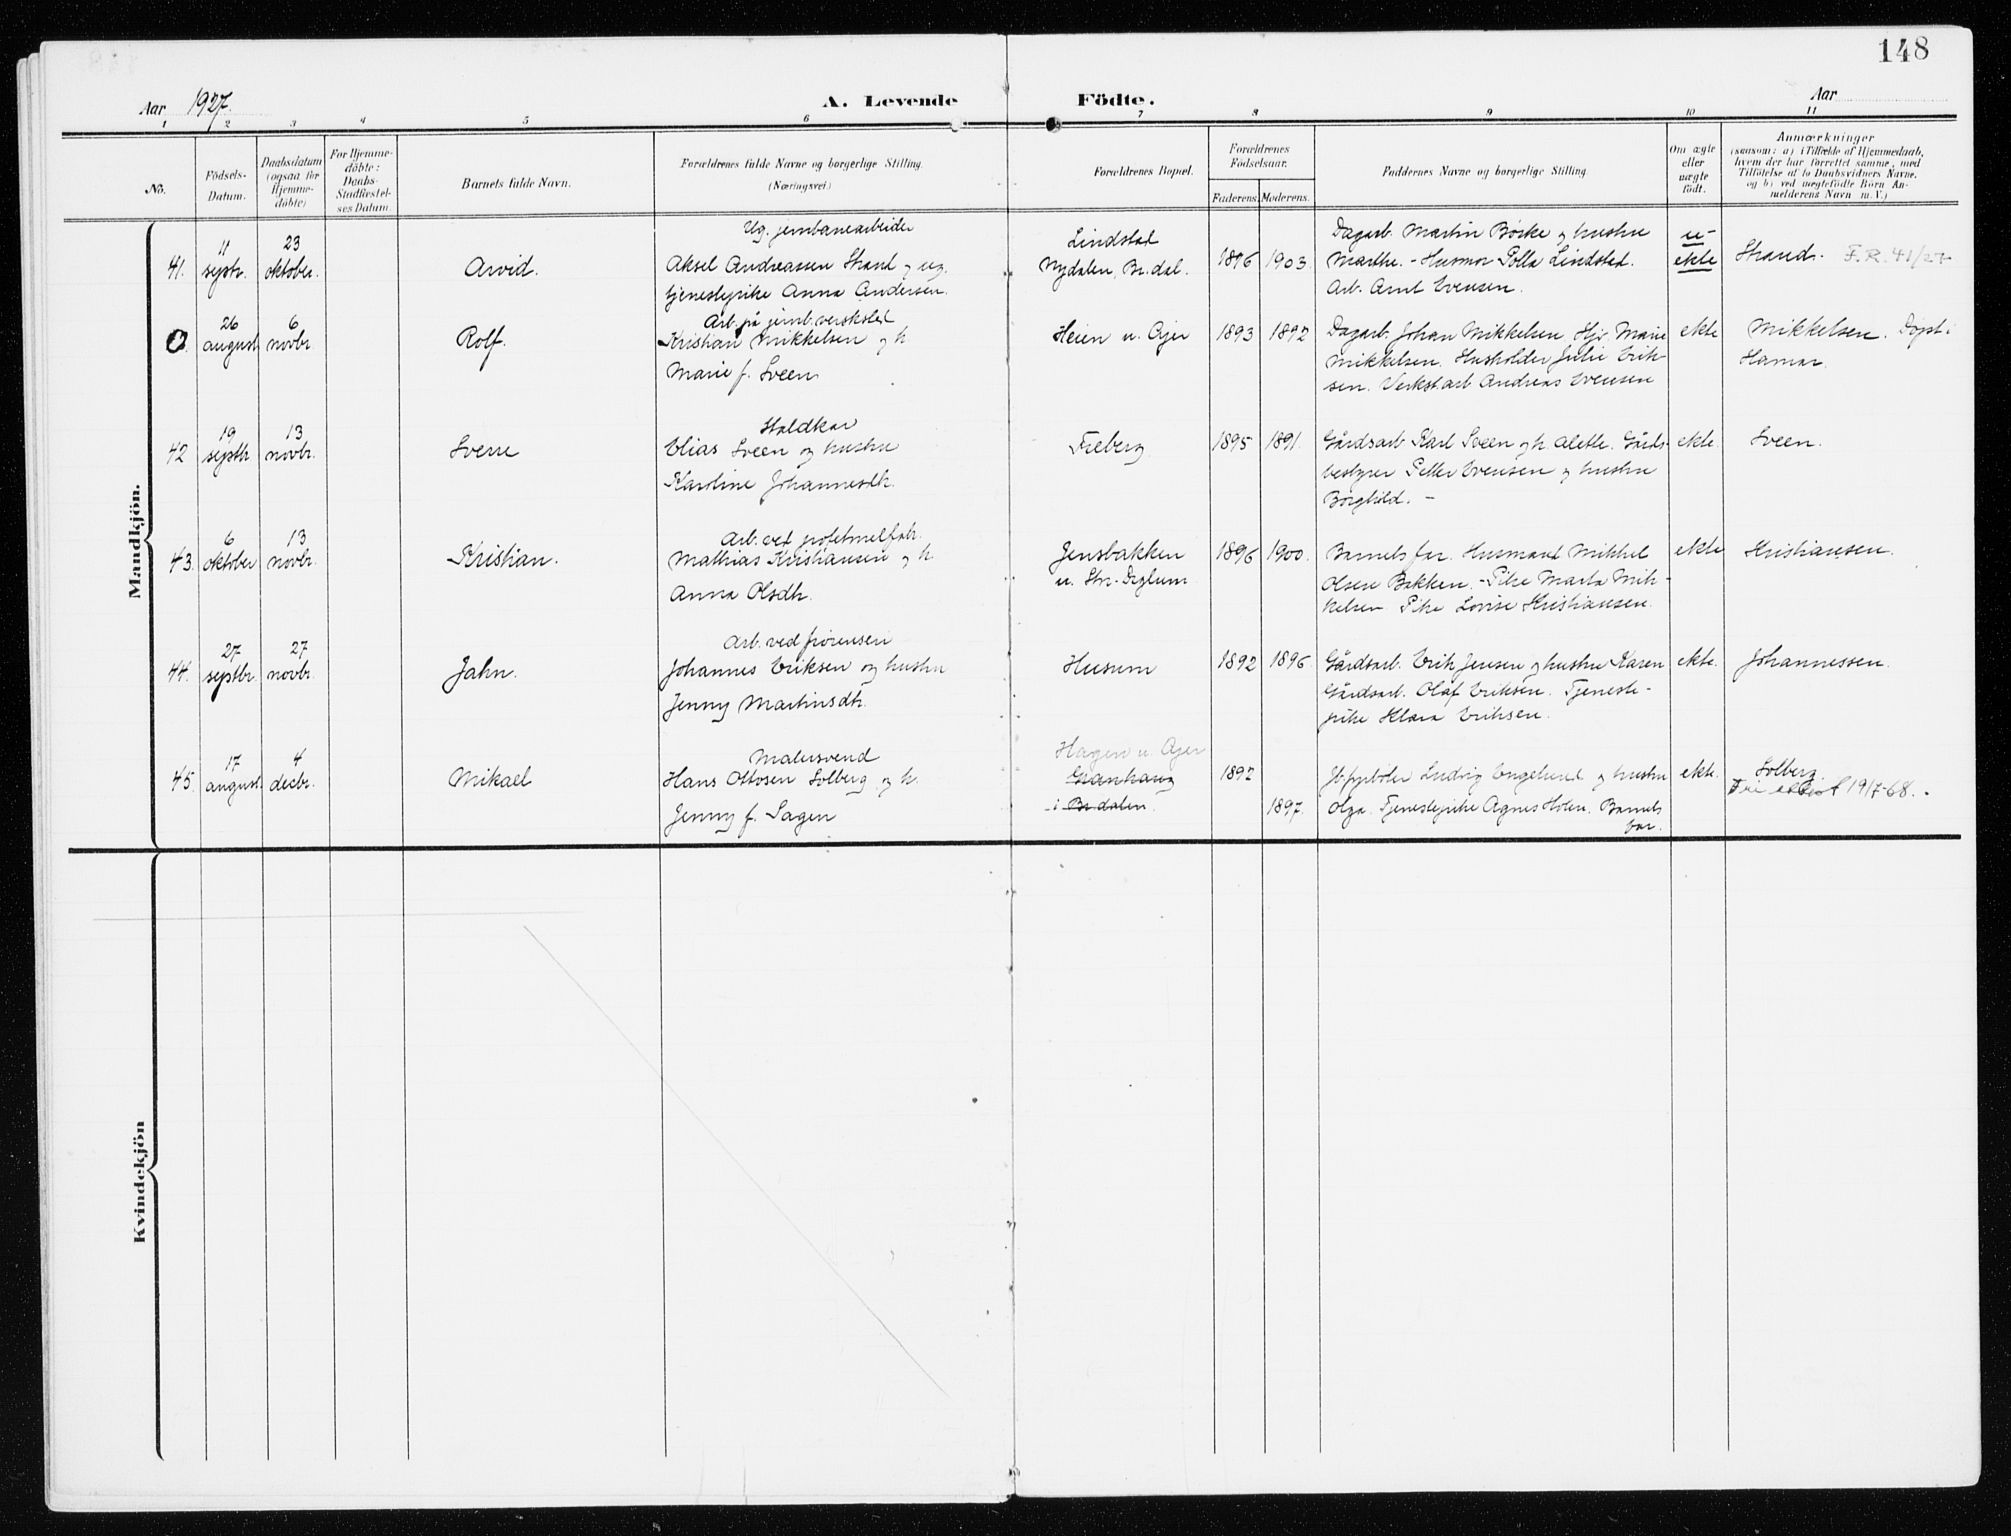 148
Aar 1927.
A. Levende Födte.
Aar
1 2 3 4 5 6 7 8 9 10 11
No.
Födsels-
Datum.
Daabsdatum
(ogsaa for
Hjemme-
döbte)
For Hjemme-
döbte:
Daabs-
Stadfæstel-
ses Datum
Barnets fulde Navn.
Forældrenes fulde Navne og borgerlige Stilling
(Næringsvei.)
Forældrenes Bopæl.
Forældrenes
Födselsaar.
Faderens. Moderens.
Faddernes Navne og borgerlige Stilling
Om ægte
eller
uægte
födt.
Anmærkninger
(saasom: a) i Tilfælde af Hjemmedaab,
hvem der har forrettet samme, med
Tilföielse af to Daabsvidners Navne.
og b) ved uægtefödte Börn An-
melderens Navn m.V.)
Mandkjön.
41.
11
septr.
23
oktober.
Arvid.
Ug. jernbanearbeider
Aksel Andreassen Strand og ug.
tjenestepike Anna Andersen.
Lindstad
Nydalen, Br.dal.
1896 1903.
Dagarb. Martin Börke og hustru
Marthe. - Husmor Polla Lindstad.
Arb. Arnt Evensen.
u-
ekte
Strand. F.R. 41/27
0.
26
august
6
novbr.
Rolf.
Arb. på jernb.verksted
Kristian Mikkelsen og h.
Marie f. Sveen
Heien u. Ajer
1893 1892
Dagarb. Johan Mikkelsen, Hj. Marie
Mikkelsen. Husholder Julie Erik-
sen. Verkst.arb Andreas Evensen
ekte
Mikkelsen. Döpt i
Hamar.
42
19
septbr
13
novbr.
Sverre
Staldkar
Elias Sveen og hustru
Karoline Johannesdtr.
Freberg
1895 1891.
Gårdsarb. Karl Sveen og h. Alette. Gårds-
bestyrer Petter Evensen og hustru
Borghild. -
ekte.
Sveen.
43.
6
oktober
13
novbr.
Kristian.
Arb. ved potetmelfabr.
Mathias Kristiansen og h.
Anna Olsdtr.
Jensbakken
u. Str-Dylum
1896 1900.
Barnets far. Husmand Mikkel
Olsen Bakken. - Pike Marta Mik-
kelsen Pike Lovise Kristiansen.
ekte
Kristiansen.
44.
27
septbr.
27
novbr.
Jahn.
Arb. ved frörensen
Johannes Eriksen og hustru
Jenny Martinsdtr.
Husum
1892 1896.
Gårdsarb. Erik Jensen og hustru Karen
Gårdsarb. Olaf Eriksen. Tjeneste-
pike Klara Eriksen.
ekte.
Johannessen.
45.
17
august.
4
decbr.
Mikael
Malersvend
Hans Ottosen Solberg og h.
Jenny f. Sagen
Hagen u. Ajer
Granhaug
i Br.dalen.
1892
1897.
Jb.fyrböter Ludvig Engelund og hustru
Olga. Tjenestepike Agnes Holen. Barnets
far.
ekte.
Solberg.
Fri attest 19/7-68.
Kvindekjön